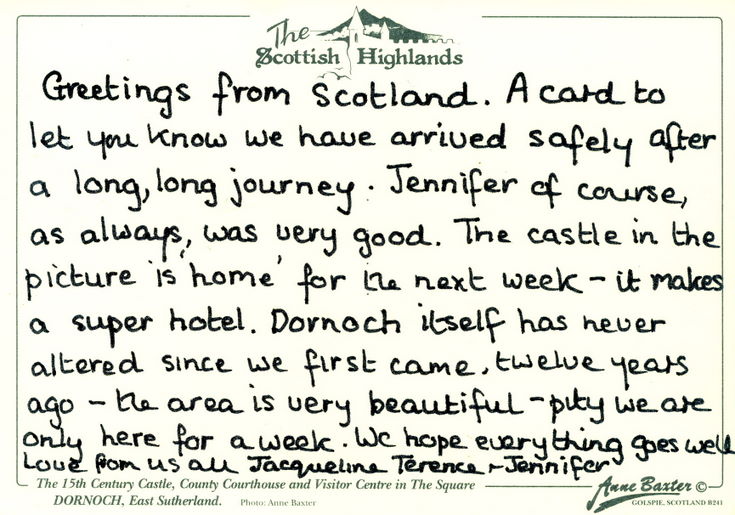 The
Scottish Highlands
Greetings from Scotland. A card to
let you know we have arrived safely after
a long, long journey. Jennifer of course,
as always, was very good. The castle in the
picture is 'home' for the next week - it makes
a super hotel. Dornoch itself has never
altered since we first came, twelve years
ago - the area is very beautiful - pity we are
only here for a week. We hope everything goes well
Love from us all Jacqueline Terence + Jennifer
The 15th Century Castle, County Courthouse and Visitor Centre in The Square
DORNOCH, East Sutherland. Photo: Anne Baxter
Anne Baxter ©
GOLSPIE, SCOTLAND B241